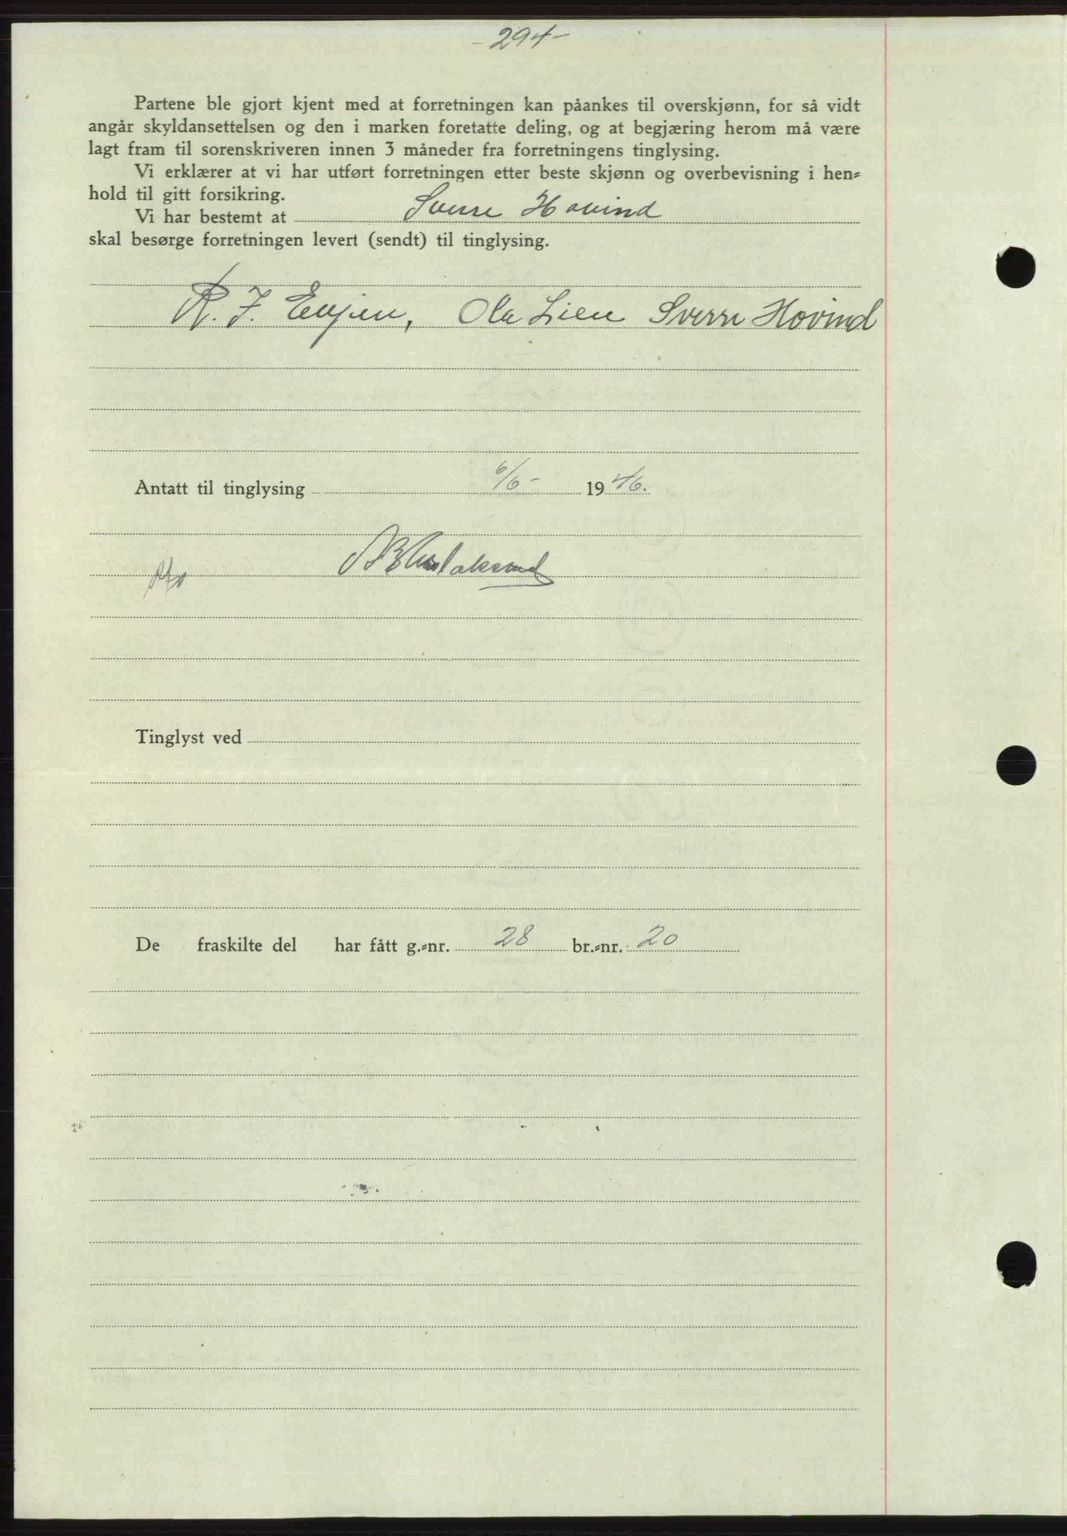 - 294 -
Partene ble gjort kjent med at forretningen kan påankes til overskjønn, for så vidt
angår skyldansettelsen og den i marken foretatte deling, og at begjæring herom må være
lagt fram til sorenskriveren innen 3 måneder fra forretningens tinglysing.
Vi erklærer at vi har utført forretningen etter beste skjønn og overbevisning i hen-
hold til gitt forsikring.
Vi har bestemt at Sverre Hovind
skal besørge forretningen levert (sendt) til tinglysing.
R. J. Ola Lien Sverre Hovind
Antatt til tinglysing 6/6- 1946.
Tinglyst ved
De fraskilte del har fått g.-nr. 28 br.-nr. 20